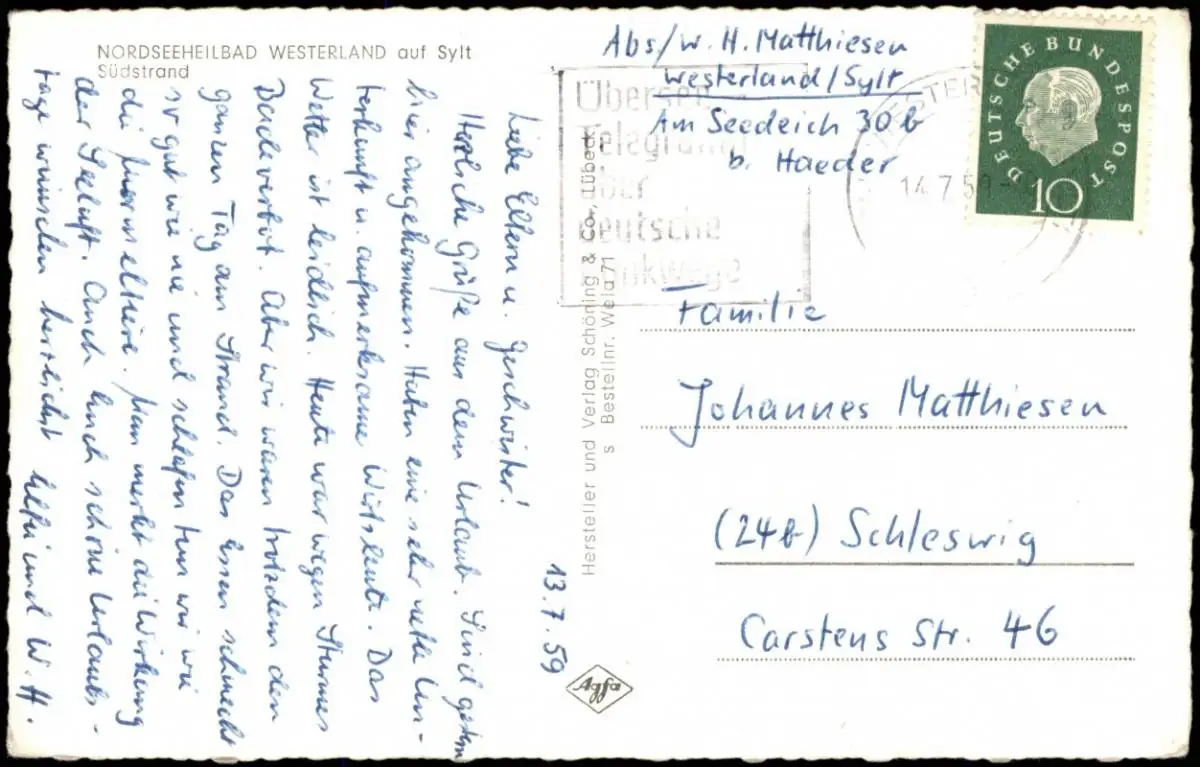 NORDSEEHEILBAD WESTERLAND auf Sylt
Südstrand
13.7.59
Liebe Eltern u. Geschwister!
Herzliche Grüße aus dem Urlaub. Sind gestern
hier angekommen. Haben eine sehr nette Un-
terkunft u. aufmerksame Wirtsleute. Das
Wetter ist leidlich. Heute war wegen Sturmes
Badeverbot. Aber wir waren trotzdem den
ganzen Tag am Strand. Das Essen schmeckt
so gut wie nie und schlafen tun wir wie
die Murmeltiere. Man merkt die Wirkung
der Seeluft. Auch Euch schöne Urlaubs-
tage wünschen herzlichst und W. H.
Hersteller und Verlag Schöning & Co., Lübeck
s Bestellnr. Wela 71
Agfa
Abs/W. H. Matthiesen
Westerland/Sylt
Am Seedeich 30b
b. Haeder
Übersee
Telegramm
über
Deutsche
Funkwege
14.7.59
DEUTSCHE BUNDESPOST
10
Familie
Johannes Matthiesen
(24b) Schleswig
Carstens Str. 46